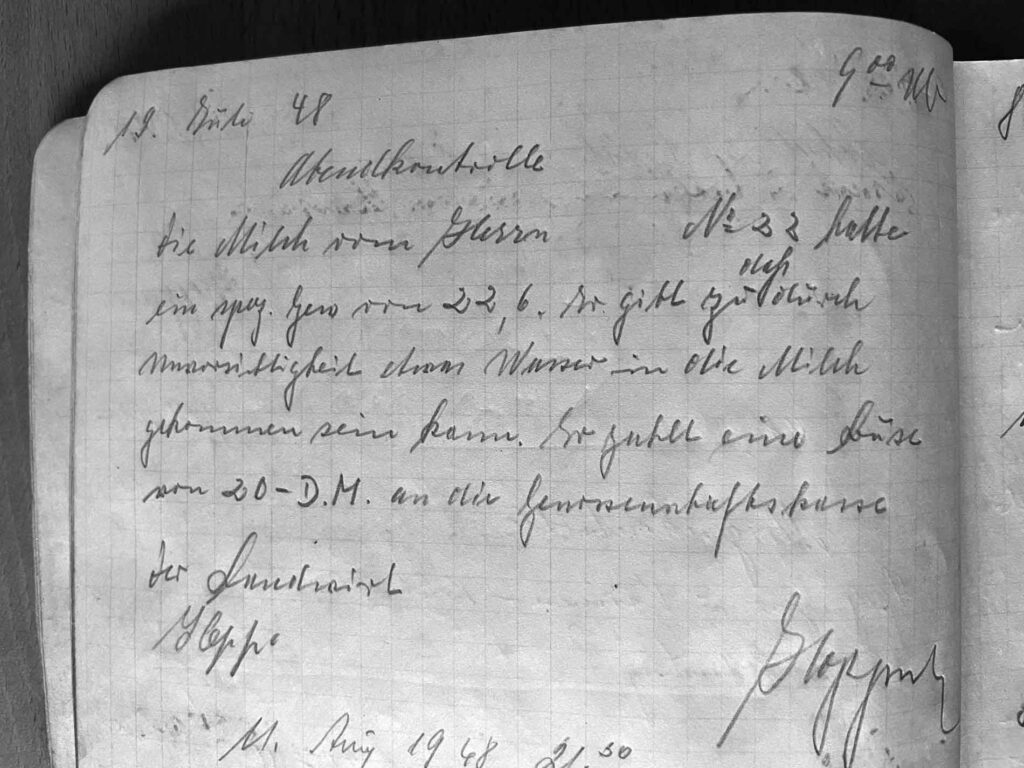 19. Juli 48 9 00 Uh
Abendkontrolle
Die Milch vom Herrn № 22 hatte
daß
ein spez. Gew von 22,6. Er gibt zu durch
Unvorsichtigkeit etwas Wasser in die Milch
gekommen sein kann. Er zahlt eine Buse
von 20-D.M. an die Genossenschaftskasse
Der Landwirt
Heppe
11. Aug 1948 21.30